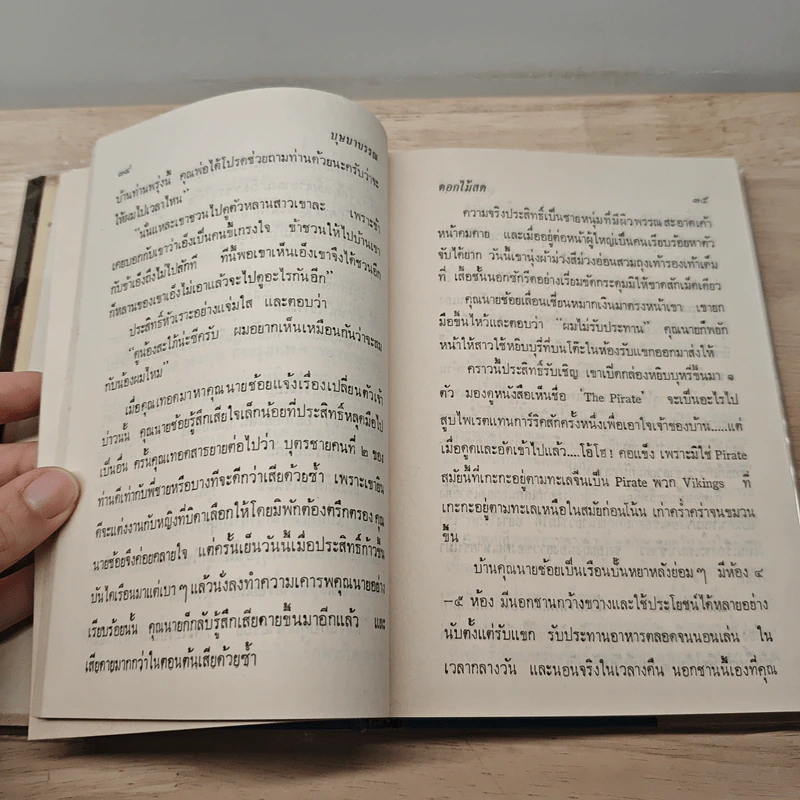 ๓๔
บุษบาบรรณ
บ้านท่านพรุ่งนี้ คุณพ่อได้โปรดช่วยถามท่านด้วยนะครับว่าจะ
ให้ผมไปเวลาไหน”
“นั่นแหละเขาชวนไปดูตัวหลานสาวเขาละ เพราะข้า
เคยบอกกับเขาว่าเอ็งเป็นคนขี้เกรงใจ ข้าชวนให้ไปบ้านเขา
กับข้าเอ็งถึงไม่ไปสักที ที่นี้พอเขาเห็นเอ็งเขาจึงได้ชวนอีก
ก็หลานของเขาเอ็งไม่เอาแล้วจะไปดูอะไรกันอีก”
ประสิทธิ์หัวเราะอย่างแจ่มใส และตอบว่า
“ดูน้องสะใภ้น่ะซีครับ ผมอยากเห็นเหมือนกันว่าจะสม
กับน้องผมไหม”
เมื่อคุณเทอดมาหาคุณนายช้อยแจ้งเรื่องเปลี่ยนตัวเจ้า
บ่าวนั้น คุณนายช้อยรู้สึกเสียใจเล็กน้อยที่ประสิทธิ์หลุดมือไป
เป็นอื่น ครั้นคุณเทอดสารยายต่อไปว่า บุตรชายคนที่ ๒ ของ
ท่านดีเท่ากับพี่ชายหรือบางทีจะดีกว่าเสียด้วยซ้ำ เพราะเขายิน
ดีจะแต่งงานกับหญิงที่บิดาเลือกให้โดยมิพักต้องตรึกตรอง คุณ
นายช้อยจึงค่อยคลายใจ แต่ครั้นเย็นวันนี้เมื่อประสิทธิ์ก้าวขึ้น
บันไดเรือนมาแต่เบา ๆ แล้วนั่งลงทำความเคารพคุณนายอย่าง
เรียบร้อยนั้น คุณนายก็กลับรู้สึกเสียดายขึ้นมาอีกแล้ว และ
เสียดายมากกว่าในตอนต้นเสียด้วยซ้ำ
ดอกไม้สด
๓๕
ความจริงประสิทธิ์เป็นชายหนุ่มที่มีผิวพรรณสะอาดเค้า
หน้าคมคาย และเมื่ออยู่ต่อหน้าผู้ใหญ่เป็นคนเรียบร้อยหาตัว
จับได้ยาก วันนี้เขานุ่งผ้าม่วงสีม่วงอ่อนสวมถุงเท้ารองเท้าเต็ม
ที่ เสื้อชั้นนอกซักรีดอย่างเรี่ยมขัดกระดุมมิให้ขาดสักเม็ดเดียว
คุณนายช้อยเลื่อนเชี่ยนหมากเงินมาตรงหน้าเขา เขายก
มือขึ้นไหว้และตอบว่า “ผมไม่รับประทาน” คุณนายก็พยัก
หน้าให้สาวใช้หยิบบุรี่ที่บนโต๊ะในห้องรับแขกออกมาส่งให้
คราวนี้ประสิทธิ์รับเชิญ เขาเปิดกล่องหยิบบุหรี่ขึ้นมา ๑
ตัว มองดูหนังสือเห็นชื่อ ‘The Pirate’ จะเป็นอะไรไป
สูบไพเรตแทนการ์ริคสักครั้งหนึ่งเพื่อเอาใจเจ้าของบ้าน.....แต่
เมื่อดูดและอัดเข้าไปแล้ว....โอ้โฮ! คอแข็ง เพราะมิใช่ Pirate
สมัยนี้ที่เกะกะอยู่ตามทะเลจีนเป็น Pirate พวก Vikings ที่
เกะกะอยู่ตามทะเลเหนือในสมัยก่อนโน้น เก่าคร่ำคร่าจนขมวน
ขึ้น
บ้านคุณนายช้อยเป็นเรือนปั้นหยาหลังย่อม ๆ มีห้อง ๔
–๕ ห้อง มีนอกชานกว้างขวางและใช้ประโยชน์ได้หลายอย่าง
นับตั้งแต่รับแขก รับประทานอาหารตลอดจนนอนเล่น ใน
เวลากลางวัน และนอนจริงในเวลางคืน นอกชานนี้เองที่คุณ